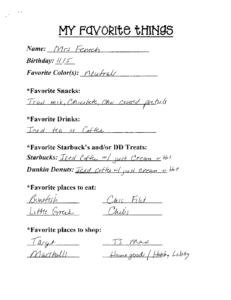 My Favorite Things
Name: Mrs Fenech
Birthday: 11/5
Favorite Color(s): Neutrals
*Favorite Snacks:
Trail mix, Chocolate, covered pretzels
*Favorite Drinks:
Iced tea or Coffee
*Favorite Starbuck's and/or DD Treats:
Starbucks: Iced Coffee w/ just Cream
Dunkin Donuts: Iced coffee w/ just cream
*Favorite places to eat:
Bonefish Chic Fila
Little Greek Chilis
*Favorite places to shop:
Target TJ Max
Marshalls Homegoods / Hobby Lobby